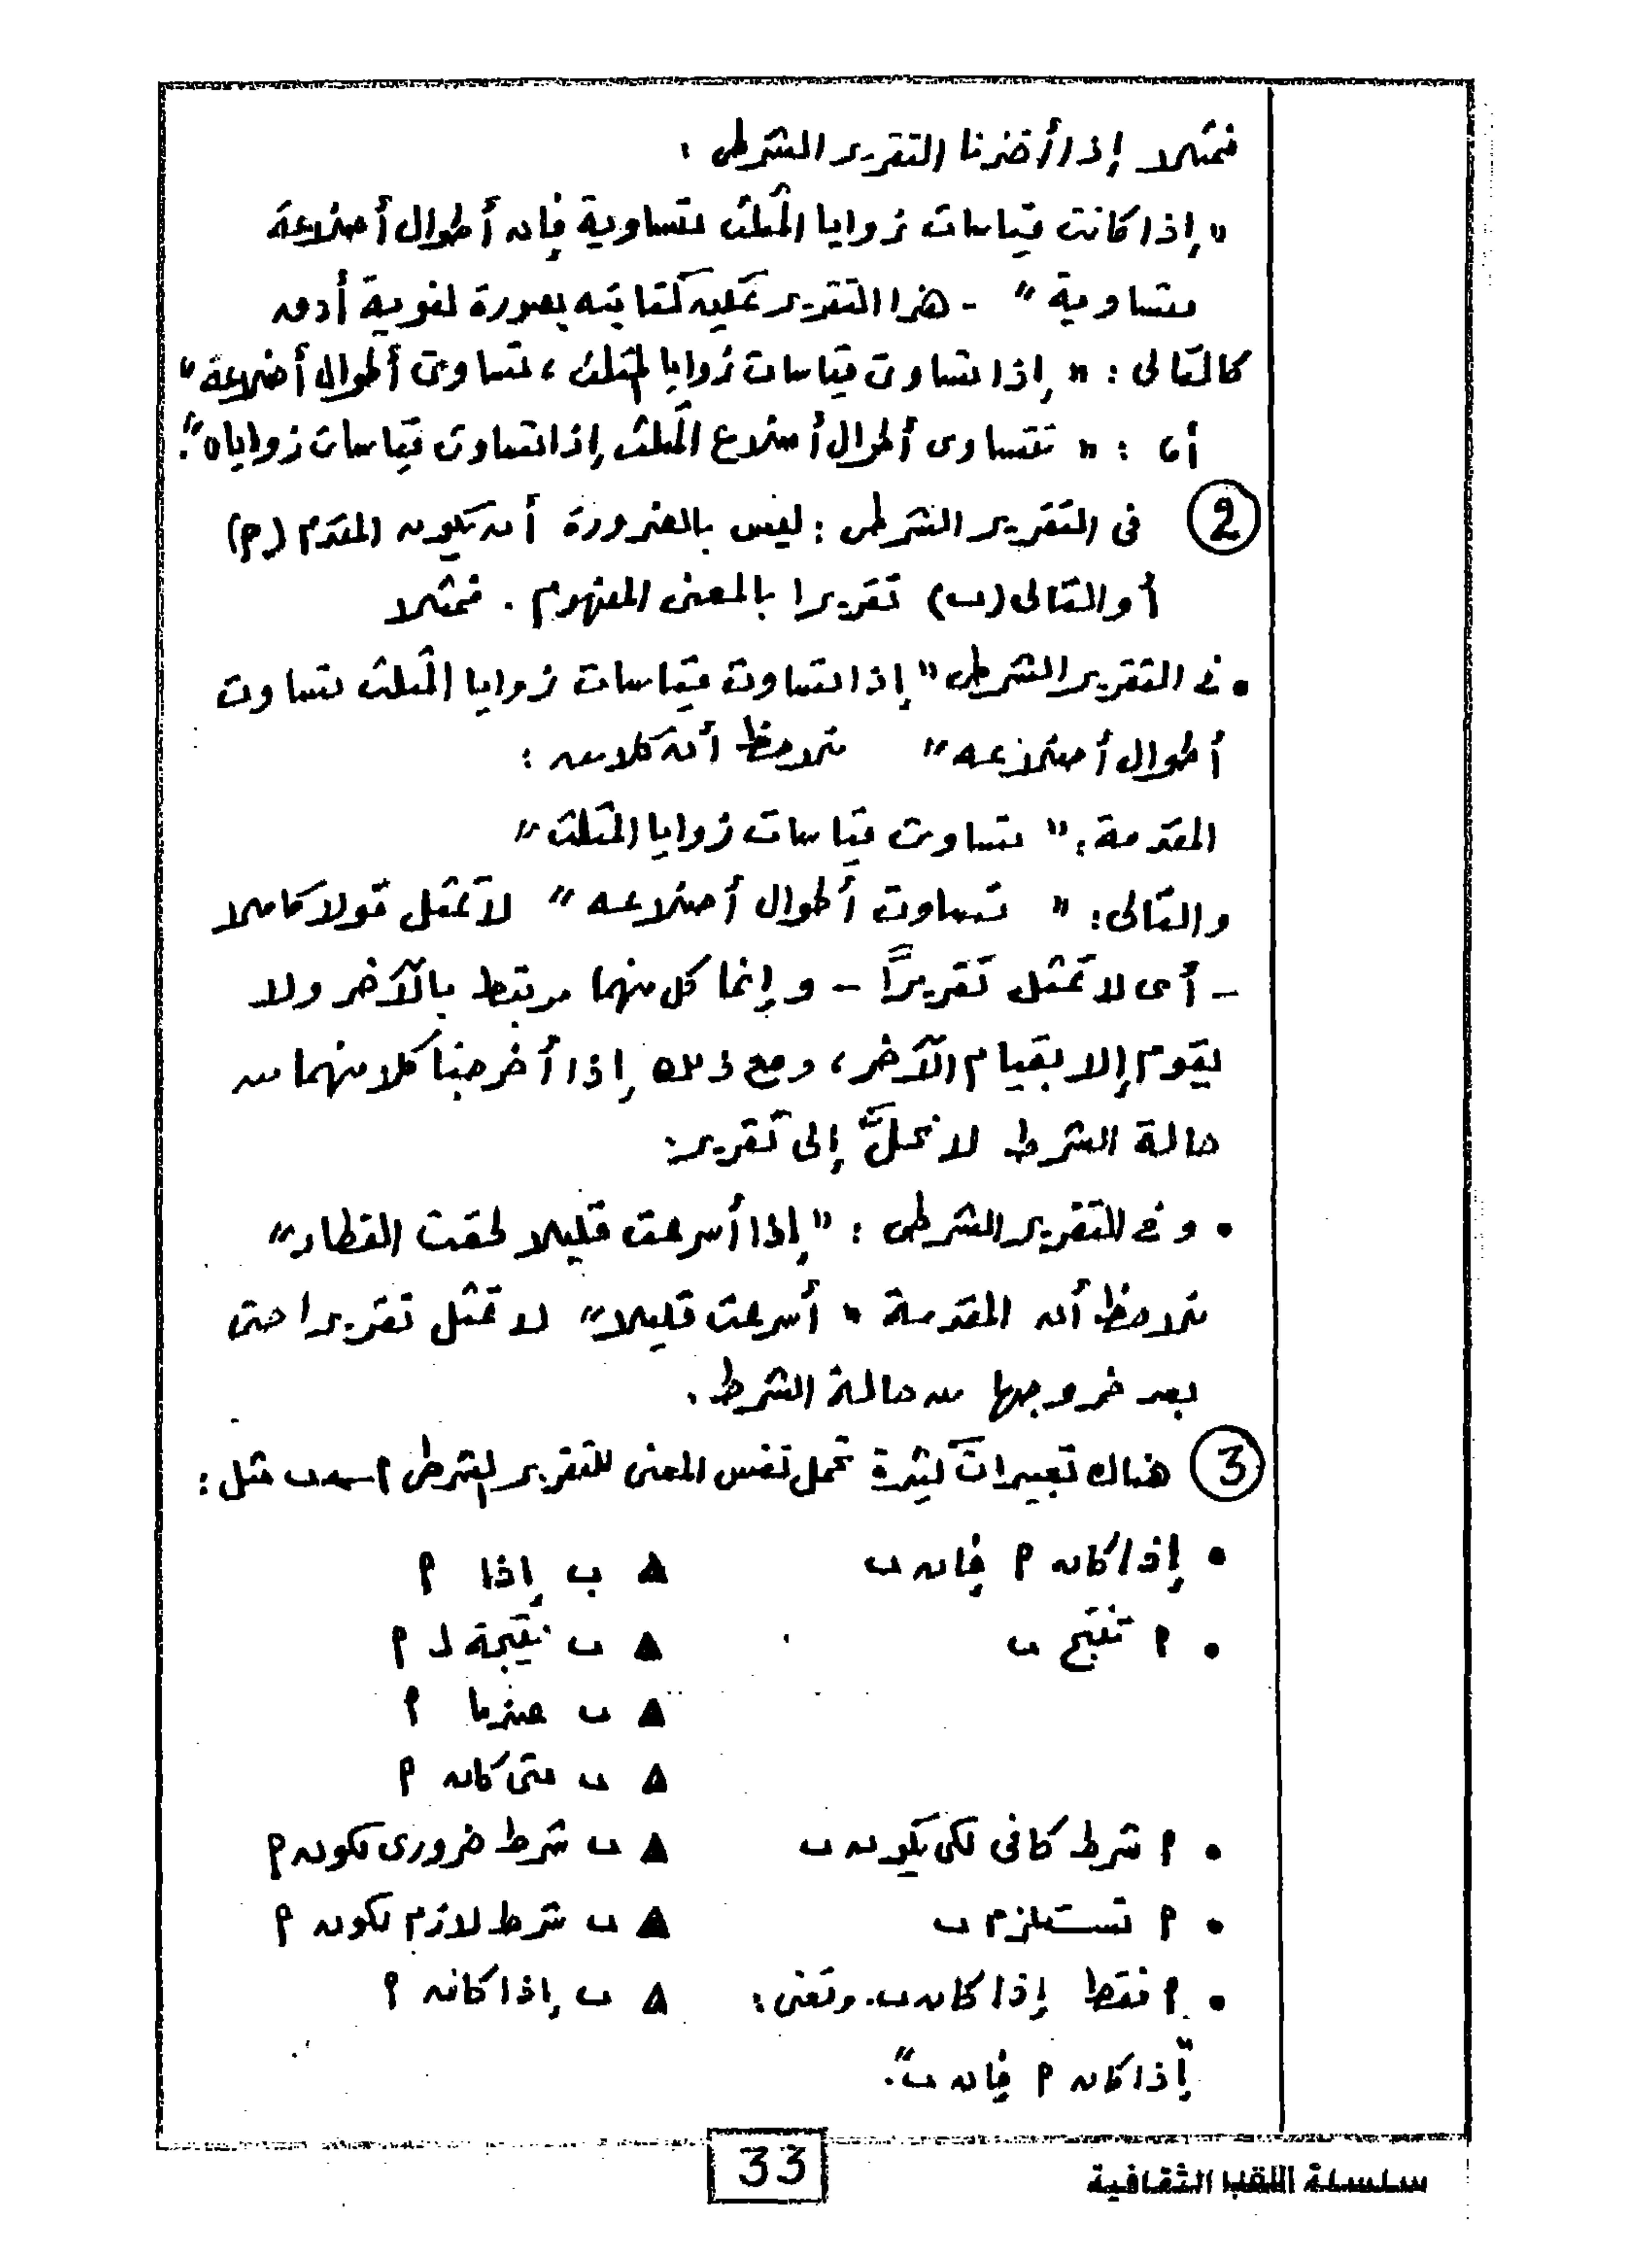 فمثلا إذا أخذنا التقرير الشرطى :
"إذا كانت قياسات زوايا المثلث متساوية فإن أطوال أضلاعة
متساوية" - هذا التقرير يمكن كتابته بصورة لغوية أدق
كالتالى : "إذا تساوت قياسات زوايا المثلث ، تساوت أطوال أضلاعة"
أى : "تتساوى أطوال أضلاع المثلث إذا تساوت قياسات زواياه".
② فى التقرير الشرطى : ليس بالضرورة أن يكون المقدم (م)
أو التالى (ب) تقريرا بالمعنى المفهوم . فمثلا
• فى التقرير الشرطى "إذا تساوت قياسات زوايا المثلث تساوت
أطوال أضلاعه" نلاحظ أن كلا من :
المقدمة : "تساوت قياسات زوايا المثلث"
والتالى : "تساوت أطوال أضلاعه" لا تمثل قولا كاملا
- أى لا تمثل تقريراً - وإنما كل منهما مرتبط بالآخر ولا
يقوم إلا بقيام الآخر ، ومع ذلك إذا أخرجنا كلا منهما من
حالة الشرط لانحلَّ إلى تقرير .
• وفى التقرير الشرطى : "إذا أسرعت قليلا لحقت القطار"
نلاحظ أن المقدمة "أسرعت قليلا" لا تمثل تقريرا حتى
بعد خروجها من حالة الشرط .
③ هناك تعبيرات كثيرة تحمل نفس المعنى للتقرير الشرطى م ← ب مثل :
• إذا كان م فإن ب ▲ ب إذا م
• م تنتج ب ▲ ب نتيجة لـ م
▲ ب عندما م
▲ ب متى كان م
• م شرط كافى لكى يكون ب ▲ ب شرط ضرورى لكون م
• م تستلزم ب ▲ ب شرط لازم لكون م
• م فقط إذا كان ب. وتعنى : ▲ ب إذا كان م
"إذا كان م فإن ب".
33
سلسلة اللقب الثقافية